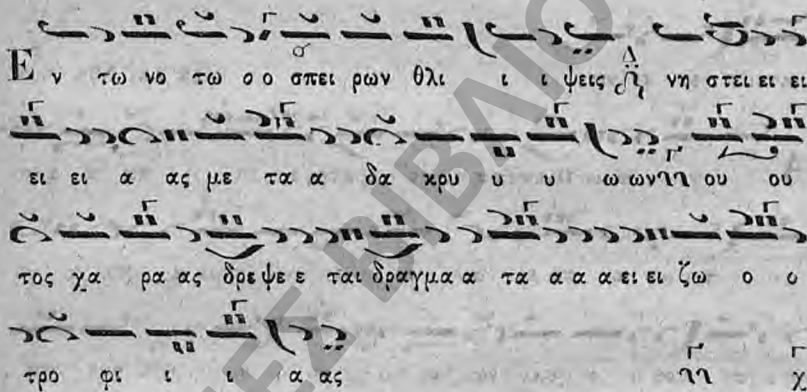 Ε ν τω νο τω ο ο σπει ρων θλι ι ι ψεις νη στει ει ει
ει ει α ας με τα α δα κρυ υ υ ω ων ου ου
τος χα ρα ας δρε ψε ε ται δραγ μα α τα α α α ει ει ζω ο ο
τρο φι ι ι α ας
ΕΣ ΒΙΒΛΙΟ